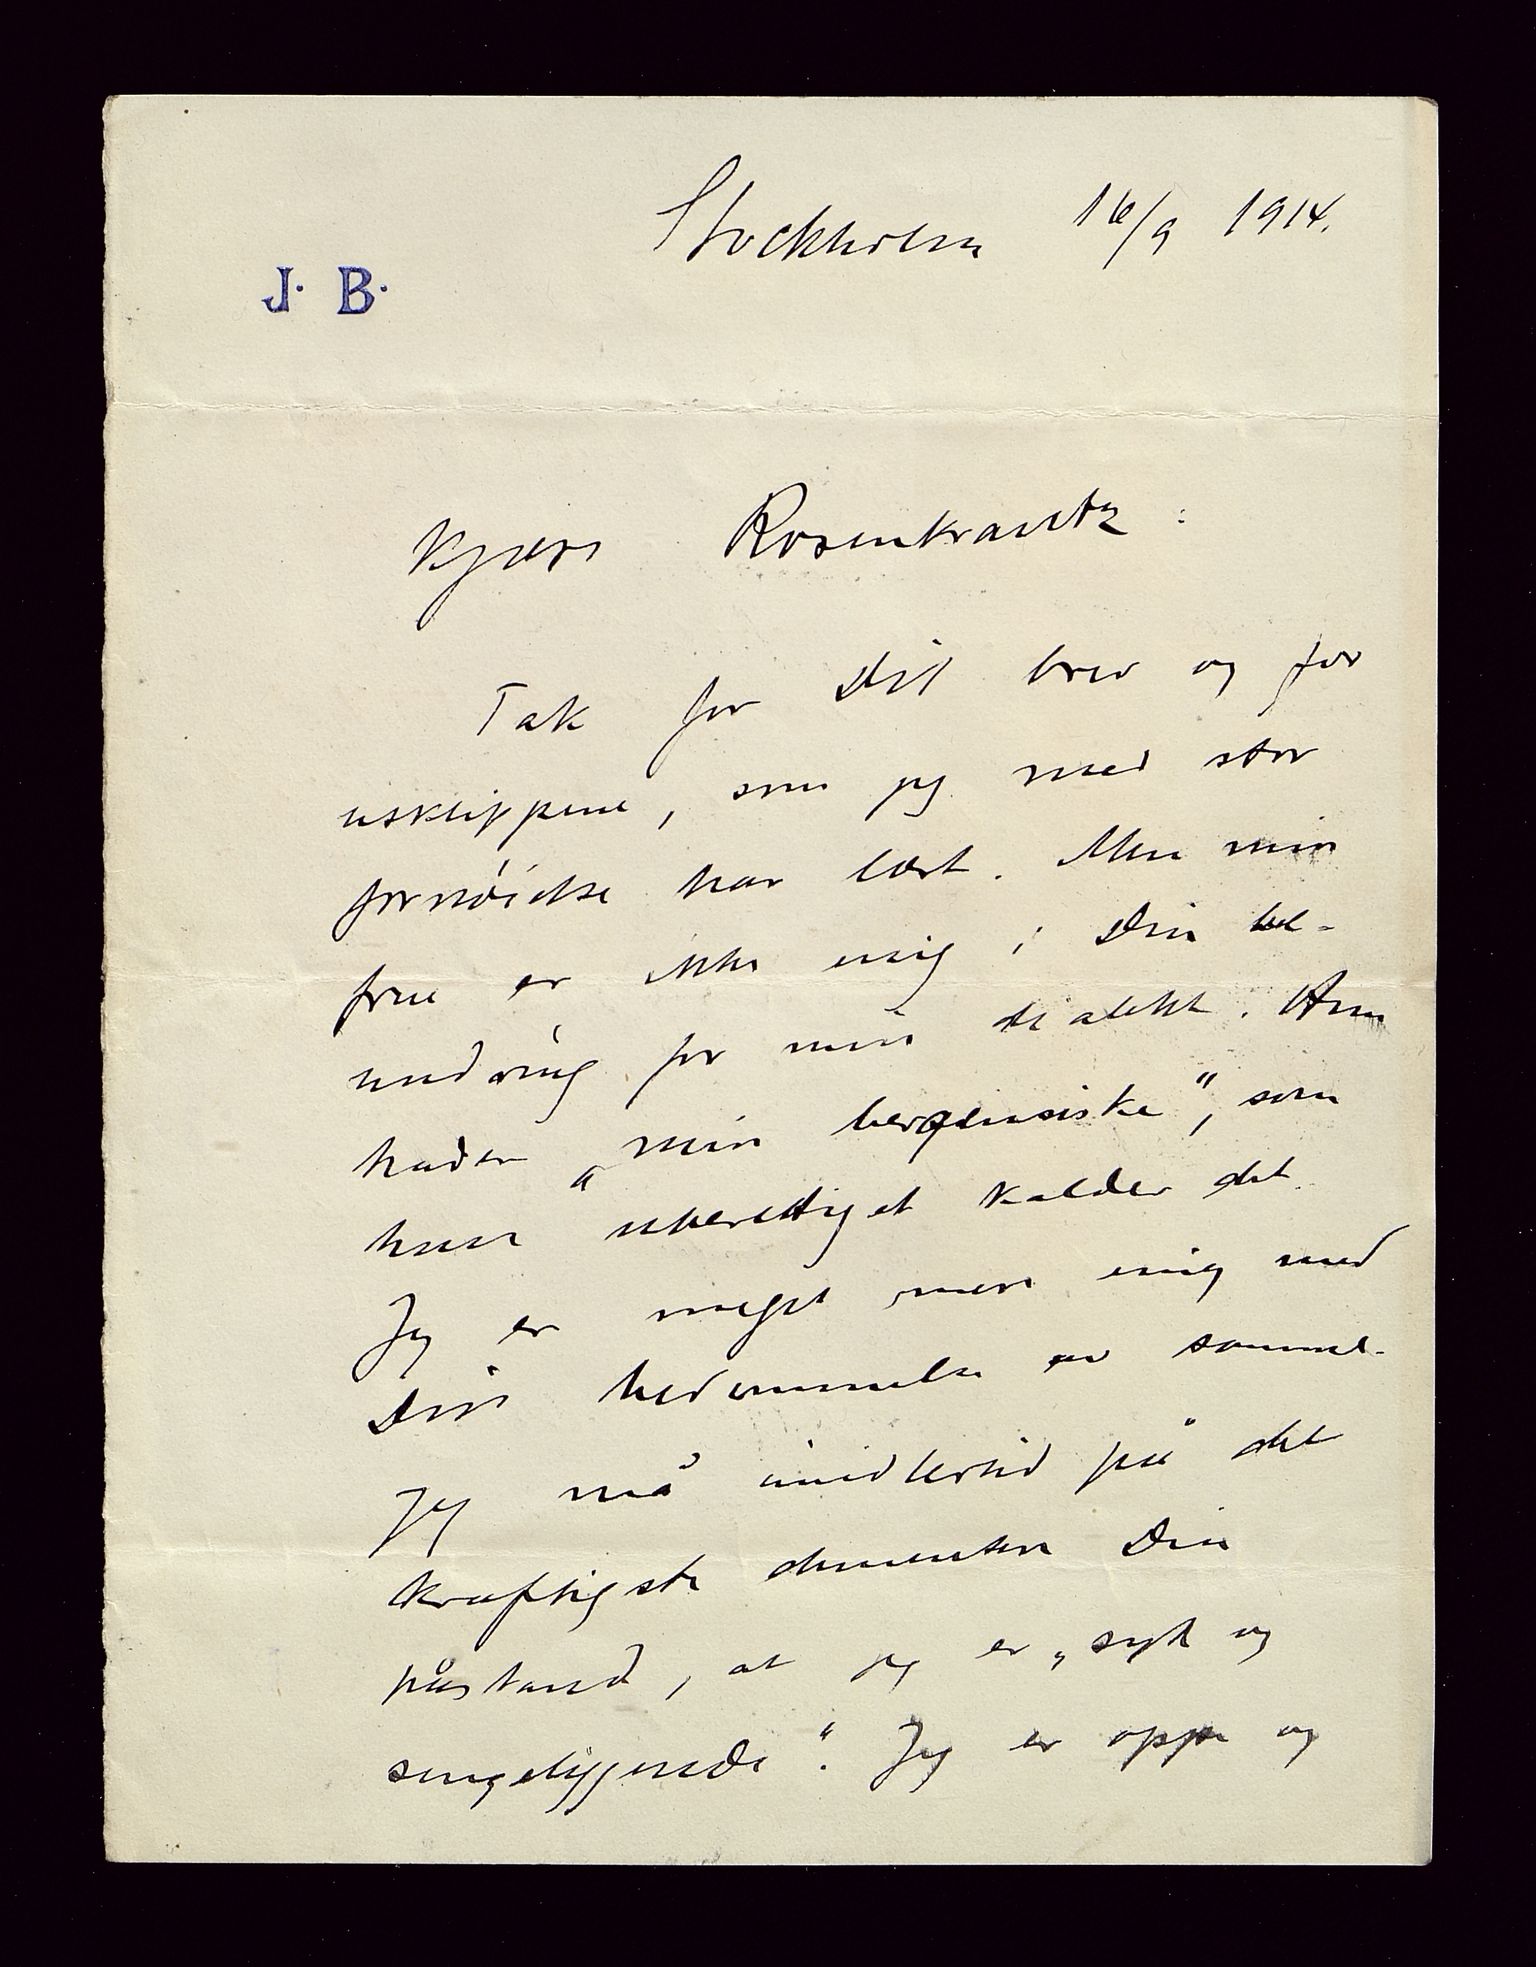 Stockholm 16/9 1914.
J. B.
Kjære Rosenkrantz:
Tak for Dit brev og for
utklippene, som jeg med stor
fornøielse har læst. Men min
frue er ikke enig i Din be-
undring for min dialekt. Hun
hader „min bergensiske", som
hun uberettiget kalder det.
Jeg er meget mere enig med
Din bedømmelse av samme.
Jeg må imidlertid på det
kraftigste dementere Din
påstand, at jeg er „syk og
sengeliggende". Jeg er oppe og